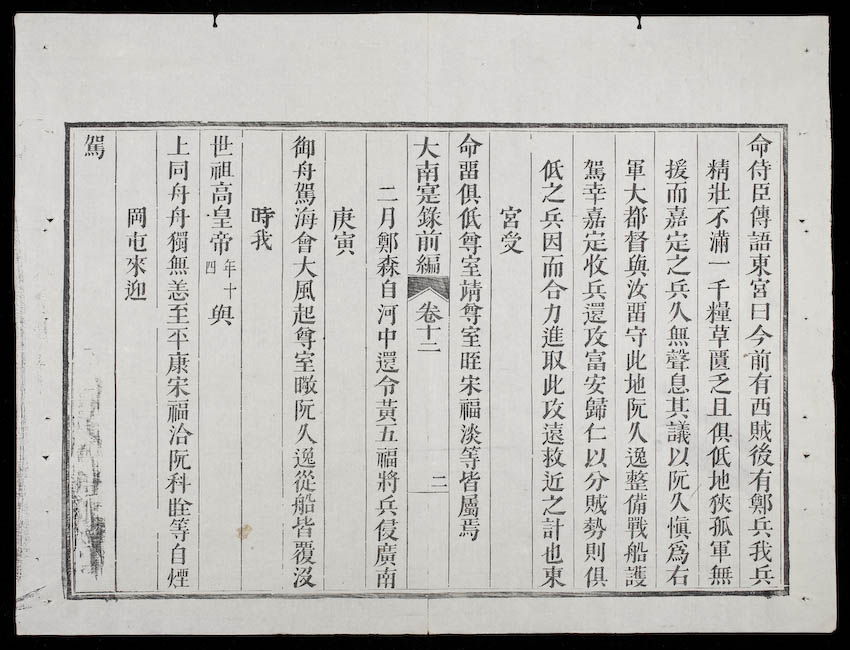 命侍臣傳語東宮曰今前有西賊後有鄭兵我兵
精壯不滿一千糧草匱乏且俱低地狹孤軍無
援而嘉定之兵久無聲息其議以阮久愼爲右
軍大都督與汝畱守此地阮久逸整備戰船護
駕幸嘉定收兵還攻富安歸仁以分賊勢則俱
低之兵因而合力進取此攻遠救近之計也東
宮受
命畱俱低尊室靖尊室晊宋福淡等皆屬焉
大南寔錄前編 卷十二 二
二月鄭森自河中還令黃五福將兵侵廣南
庚寅
御舟駕海會大風起尊室暾阮久逸從船皆覆沒
時我
世祖高皇帝年十四與
上同舟舟獨無恙至平康宋福洽阮科等自煙
岡屯來迎
駕